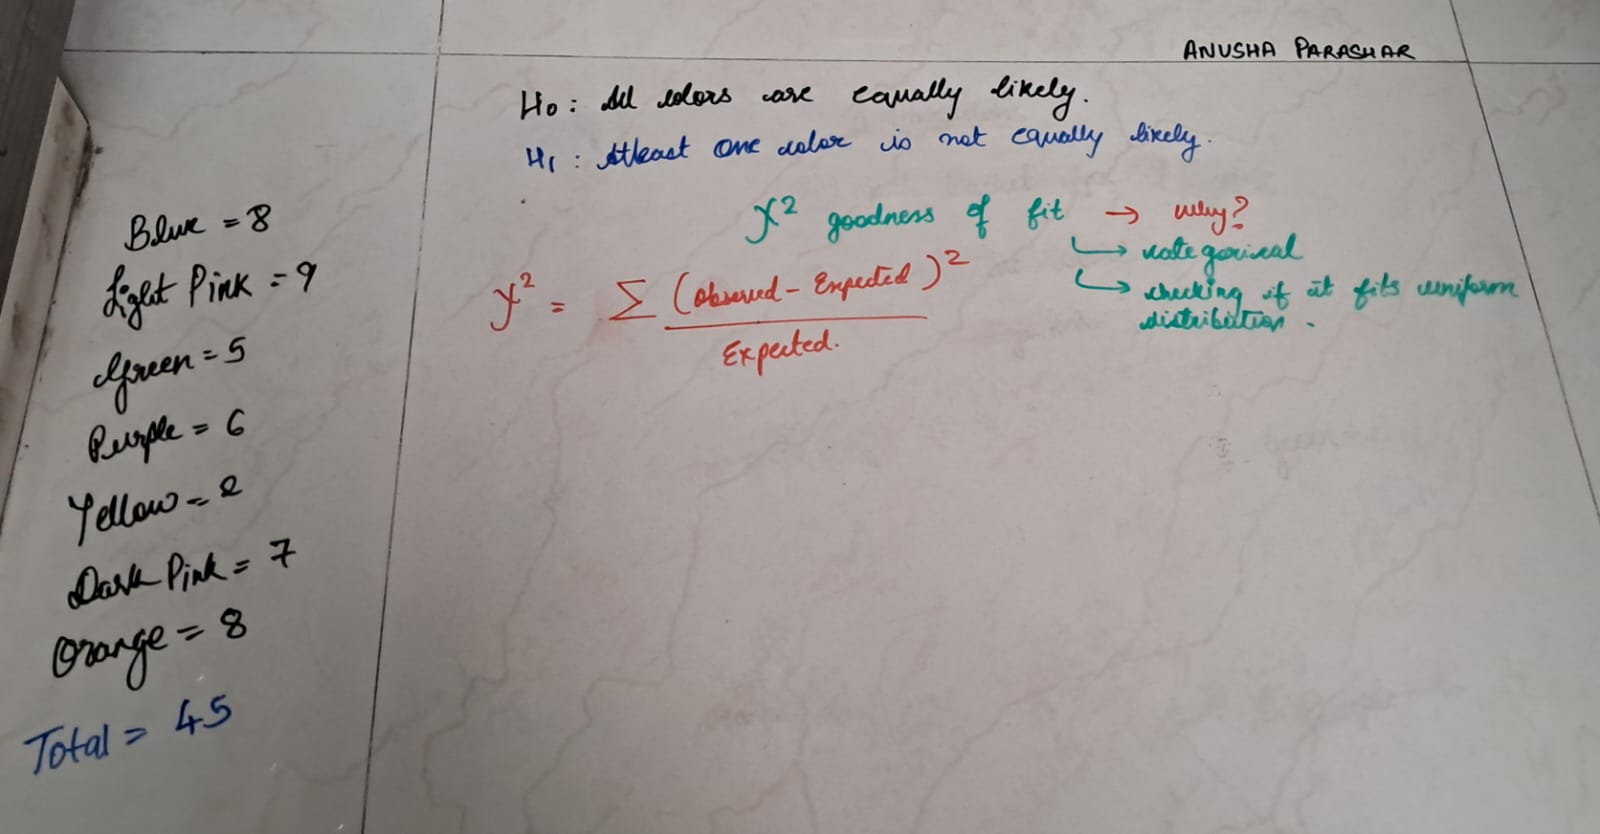 ANUSHA PARASHAR
H0 : All colors are equally likely.
H1 : Atleast one color is not equally likely.
χ² goodness of fit → why?
↳ categorical
↳ checking if it fits uniform
distribution.
χ² = Σ (Observed - Expected)²
Expected.
Blue = 8
Light Pink = 9
Green = 5
Purple = 6
Yellow = 2
Dark Pink = 7
Orange = 8
Total = 45